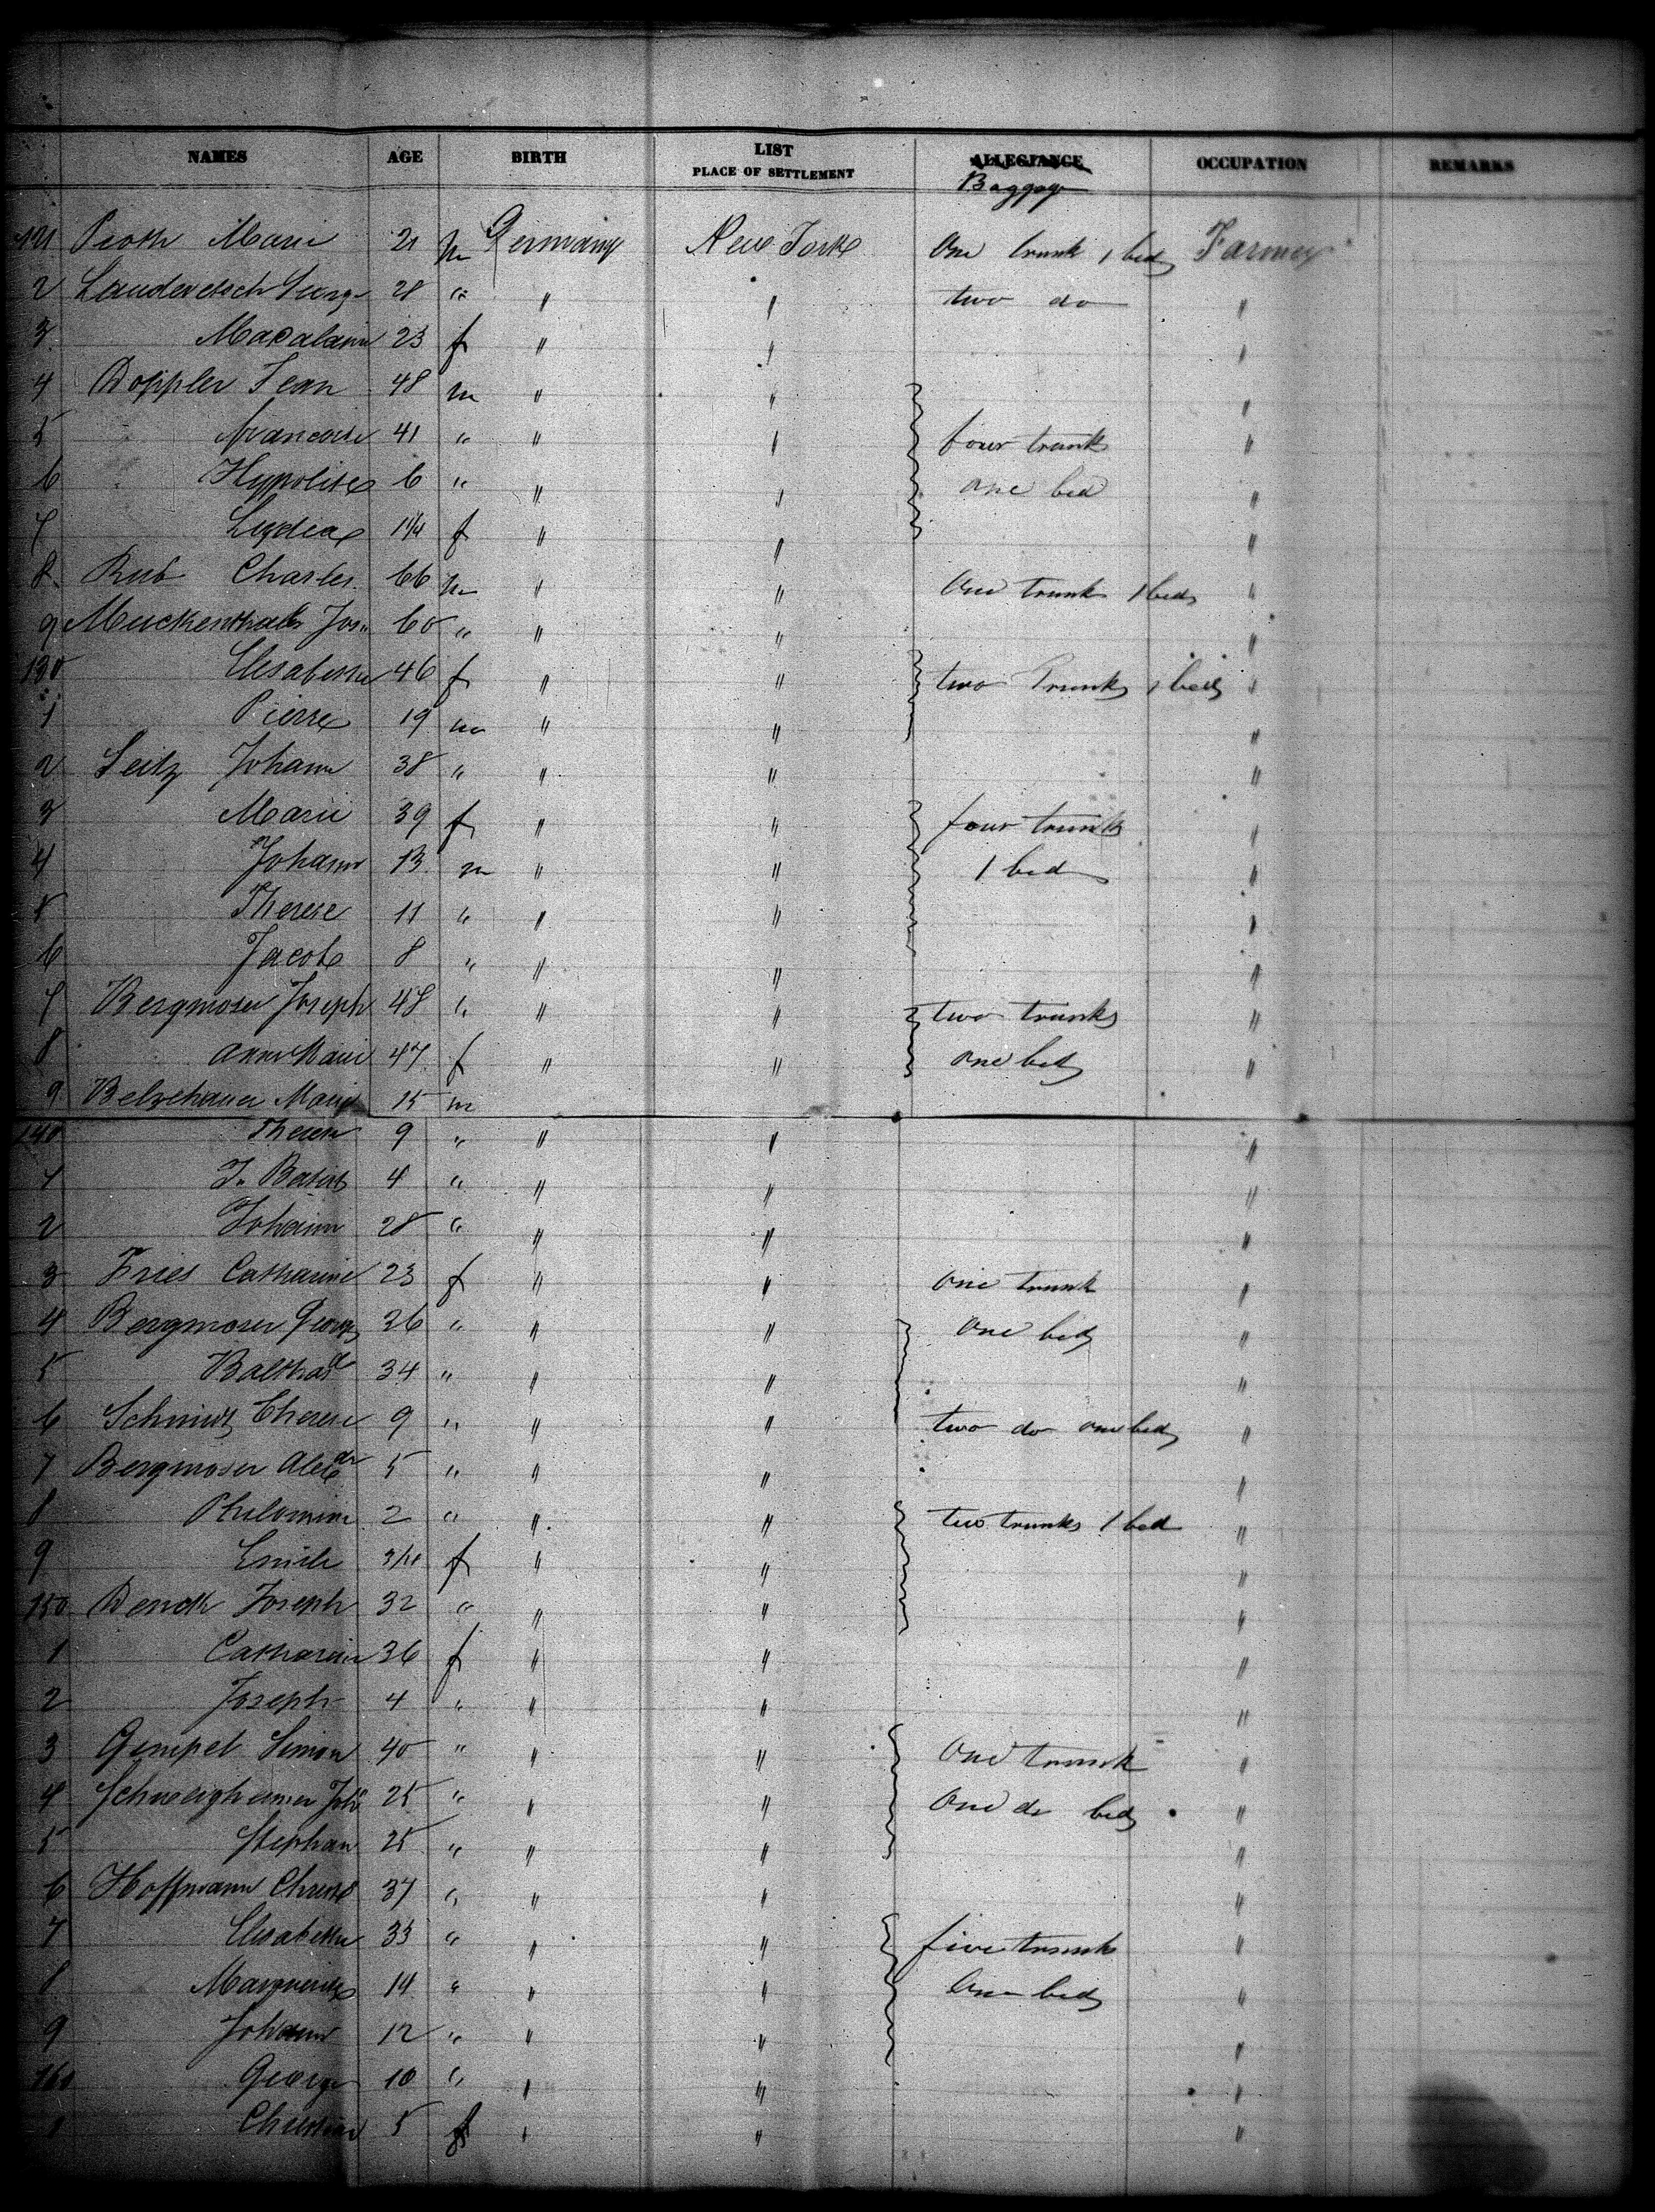 NAMES AGE BIRTH LIST PLACE OF SETTLEMENT ALLEGIANCE Baggage OCCUPATION REMARKS
121 Marie 21 m Germany New York One trunk 1 bed Farmer
2 George 28 " " " two do "
3 23 f " " "
4 Doppler Jean 48 m " " "
5 Francoise 41 " " " four trunk "
6 Hypolite 6 " " " one bed "
7 Lydia f " " "
8 Rub Charles 66 m " " One trunk 1 bed "
9 Muckenthaler Jos. 60 " " " "
130 Elisabetha 46 f " " two Trunks 1 bed "
1 Pierre 19 m " " "
2 Seitz Johann 38 " " " "
3 Marie 39 f " " four trunks "
4 Johann 13 m " " 1 bed "
5 Therese 11 " " " "
6 Jacob 8 " " " "
7 Bergmoser Joseph 48 " " " two trunks "
8 Anna Marie 47 f " " one bed "
9 Marie 15 m
140 Therese 9 " " " "
1 4 " " " "
2 Johann 28 " " " "
3 Fries Catharine 23 f " " One trunk "
4 Bergmoser George 36 " " " One bed "
5 34 " " " "
6 Schmidt Therese 9 " " " two do one bed "
7 Bergmoser 5 " " " "
8 Philomine 2 " " " two trunks 1 bed "
9 Emile f " " "
150 Joseph 32 " " " "
1 Catharine 36 f " " "
2 Joseph 4 " " " "
3 Gempel Simon 40 " " " One trunk "
4 25 " " " One do bed "
5 Stephan 25 " " " "
6 Hoffmann 37 " " " "
7 Elisabetha 33 " " " five trunk "
8 Marguerite 14 " " " One bed "
9 Johann 12 " " " "
160 George 10 " " " "
1 Christine 5 f " " "